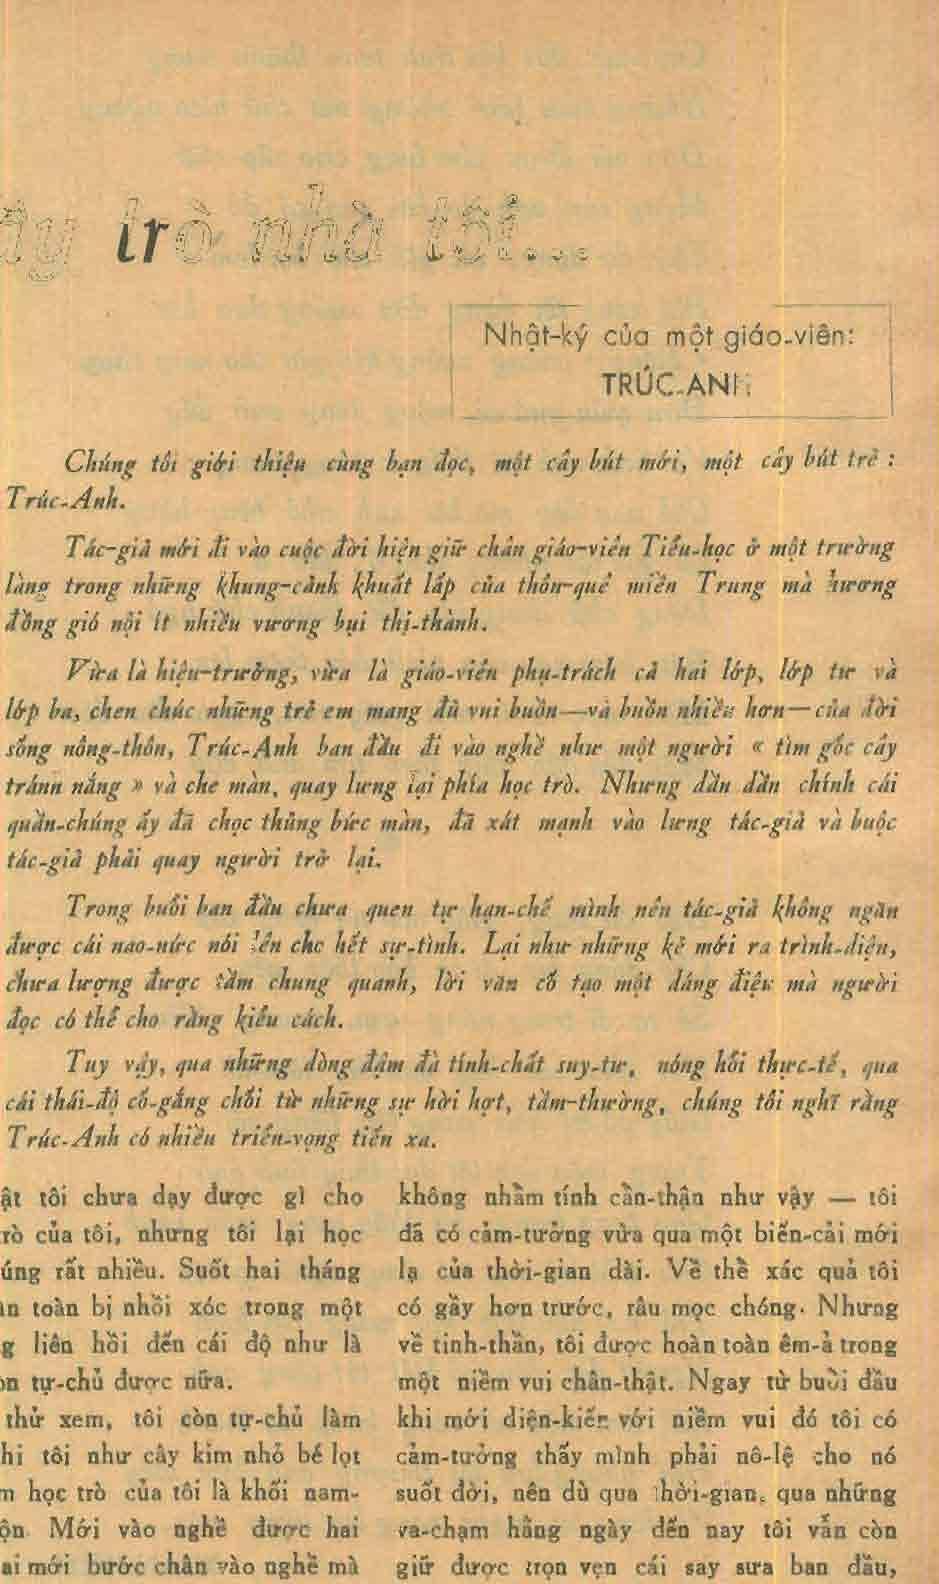 trò nhà tôi...
Nhật-ký của một giáo-viên:
TRÚC-ANH
Chúng tôi giới thiệu cùng bạn đọc, một cây bút mới, một cây bút trẻ :
Trúc-Anh.
Tác-giả mới đi vào cuộc đời hiện giữ chân giáo-viên Tiểu-học ở một trường
làng trong những khung-cảnh khuất lấp của thôn-quê miền Trung mà hương
đồng gió nội ít nhiều vương bụi thị-thành.
Vừa là hiệu-trưởng, vừa là giáo-viên phụ-trách cả hai lớp, lớp tư và
lớp ba, chen chúc những trẻ em mang đủ vui buồn—và buồn nhiều hơn—của đời
sống nông-thôn, Trúc-Anh ban đầu đi vào nghề như một người « tìm gốc cây
tránh nắng » và che màn, quay lưng lại phía học trò. Nhưng dần dần chính cái
quần-chúng ấy đã chọc thủng bức màn, đã xát mạnh vào lưng tác-giả và buộc
tác-giả phải quay người trở lại.
Trong buổi ban đầu chưa quen tự hạn-chế mình nên tác-giả không ngăn
được cái nao-nức nói lên cho hết sự-tình. Lại như những kẻ mới ra trình-diện,
chưa lượng được tầm chung quanh, lời văn cố tạo một dáng điệu mà người
đọc có thể cho rằng kiểu cách.
Tuy vậy, qua những dòng đậm đà tính-chất suy-tư, nóng hổi thực-tế, qua
cái thái-độ cố-gắng chối từ những sự hời hợt, tầm-thường, chúng tôi nghĩ rằng
Trúc-Anh có nhiều triển-vọng tiến xa.
tôi chưa dạy được gì cho
của tôi, nhưng tôi lại học
rất nhiều. Suốt hai tháng
toàn bị nhồi xóc trong một
liên hồi đến cái độ như là
tự-chủ được nữa.
thử xem, tôi còn tự-chủ làm
tôi như cây kim nhỏ bé lọt
học trò của tôi là khối nam-
Mới vào nghề được hai
mới bước chân vào nghề mà
không nhầm tính cẩn-thận như vậy — tôi
đã có cảm-tưởng vừa qua một biến-cải mới
lạ của thời-gian dài. Về thể xác quả tôi
có gầy hơn trước, râu mọc chóng. Nhưng
về tinh-thần, tôi được hoàn toàn êm-ả trong
một niềm vui chân-thật. Ngay từ buổi đầu
khi mới diện-kiến với niềm vui đó tôi có
cảm-tưởng thấy mình phải nô-lệ cho nó
suốt đời, nên dù qua thời-gian, qua những
va-chạm hằng ngày đến nay tôi vẫn còn
giữ được trọn vẹn cái say sưa ban đầu,